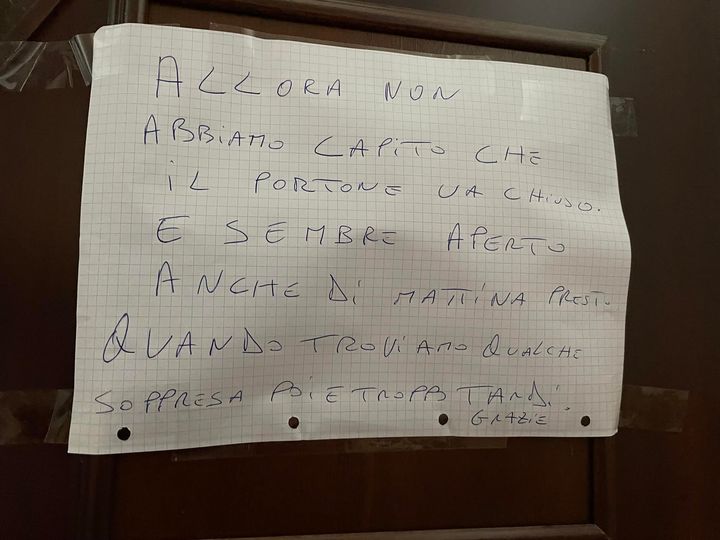 ALLORA NON
ABBiAMO CAPiTO CHE
iL PORTONE VA CHiUSO.
E SEMBRE APERTO
ANCHE Di MATTiNA PRESTO
QUANDO TROViAMO QUALCHE
SOPPRESA POi E TROPPO TANDi.
GRAZiE